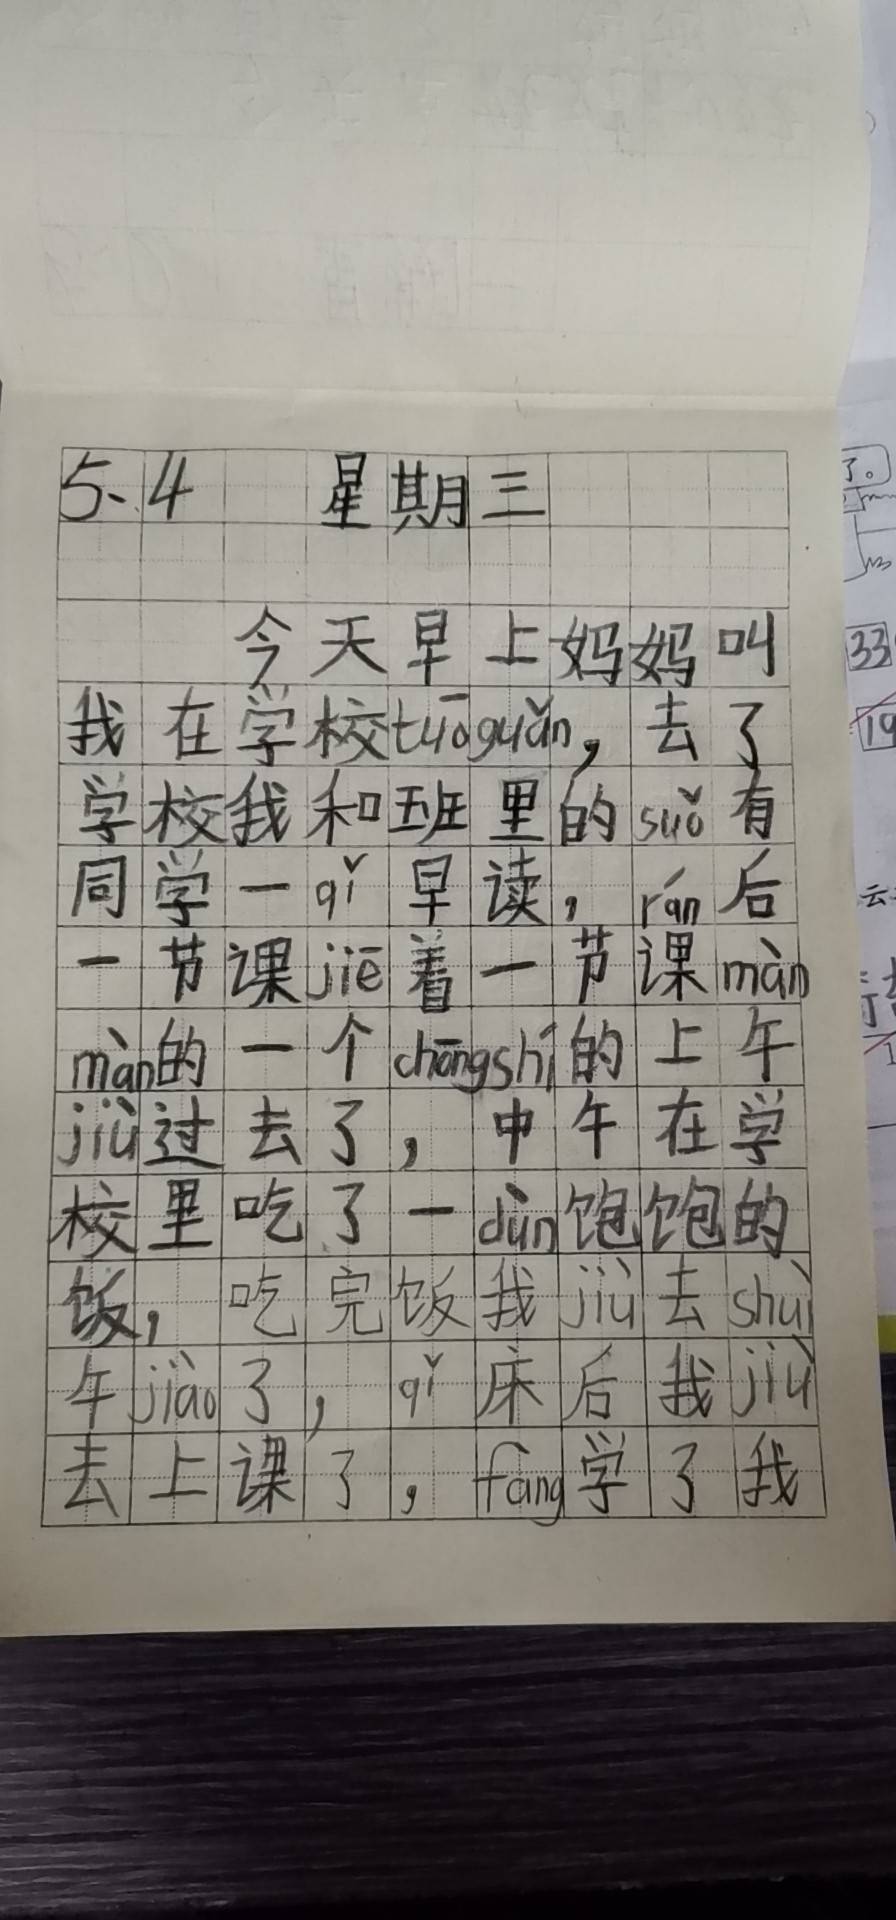 5.4 星期三
今天早上妈妈叫
我在学校tuōguǎn,去了
学校我和班里的suǒ有
同学一qǐ早读,rán后
一节课jiē着一节课màn
màn的一个chōngshí的上午
jiù过去了,中午在学
校里吃了一dùn饱饱的
饭,吃完饭我jiù去shuì
午jiào了,qǐ床后我jiù
去上课了,fàng学了我
33
19